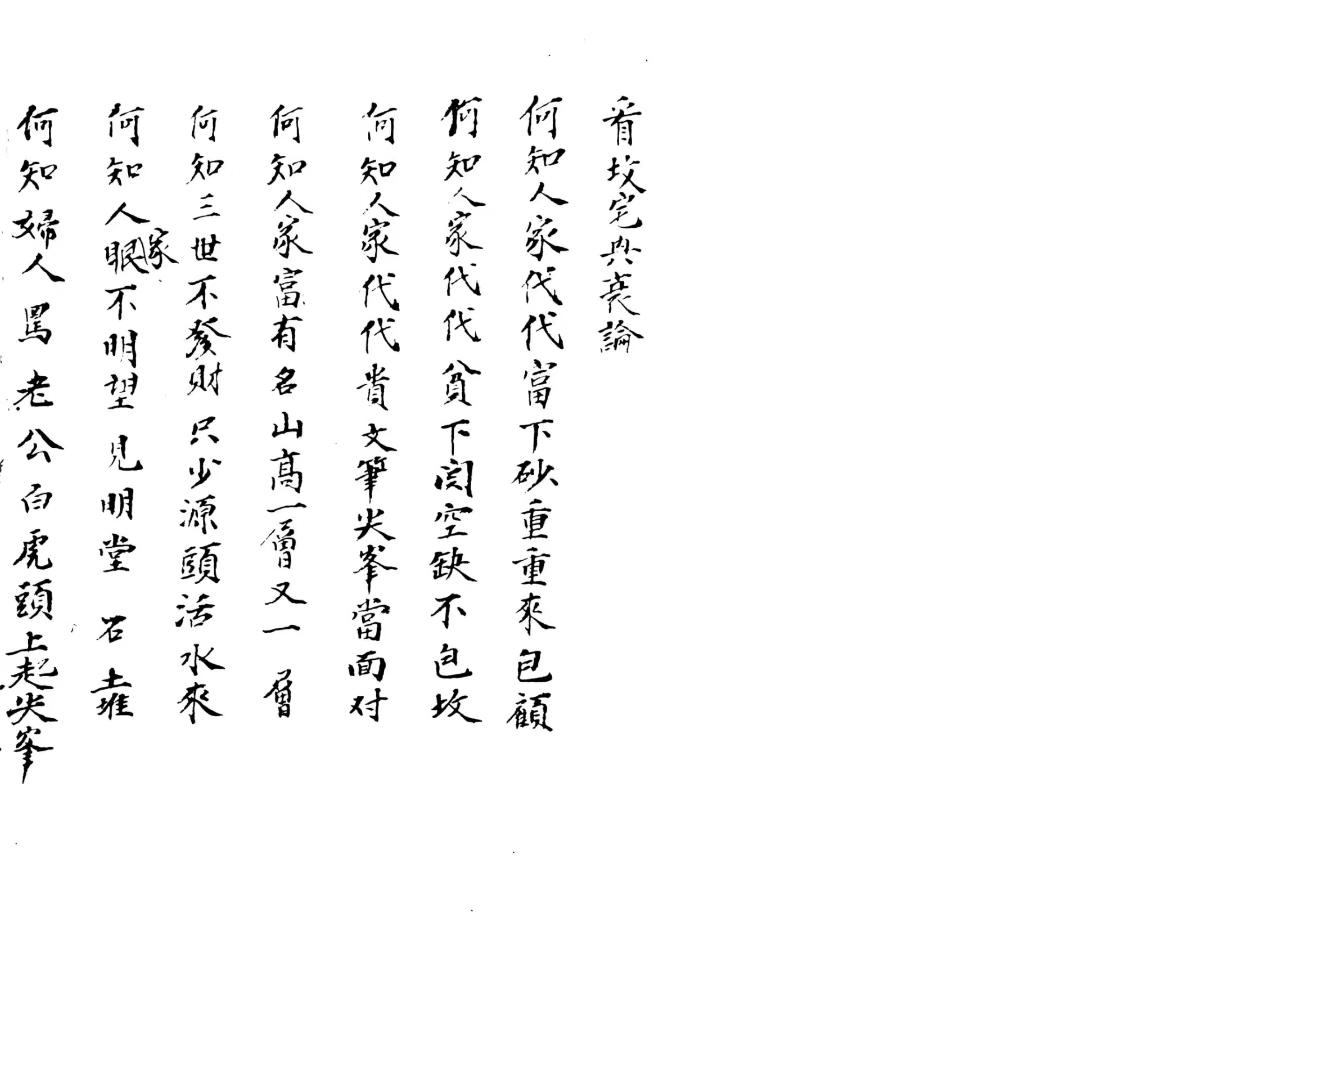 看坟宅兴衰論
何知人家代代富下砂重重來包顧
何知人家代代貧下関空缺不包坟
何知人家代代貴文筆尖峯當面对
何知人家富有名山高一層又一層
何知三世不發財只少源頭活水來
何知人家眼不明望見明堂石土堆
何知婦人罵老公白虎頭上起尖峯